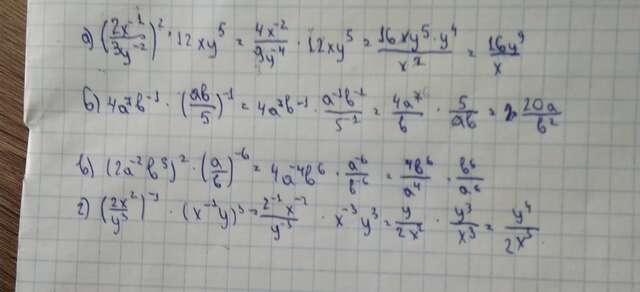 а) (2x⁻¹/3y⁻²)² · 12xy⁵ = 4x⁻²/9y⁻⁴ · 12xy⁵ = 16xy⁵·y⁴/x² = 16y⁹/x
б) 4a⁷b⁻¹ · (ab/5)⁻¹ = 4a⁷b⁻¹ · a⁻¹b⁻¹/5⁻¹ = 4a⁷/b · 5/ab = 20a/b²
в) (2a⁻²b³)² · (a/b)⁻⁶ = 4a⁻⁴b⁶ · a⁻⁶/b⁻⁶ = 4b⁶/a⁴ · b⁶/a⁶
г) (2x²/y³)⁻¹ · (x⁻¹y)³ = 2⁻¹x⁻²/y⁻³ · x⁻³y³ = y/2x² · y³/x³ = y⁴/2x⁵